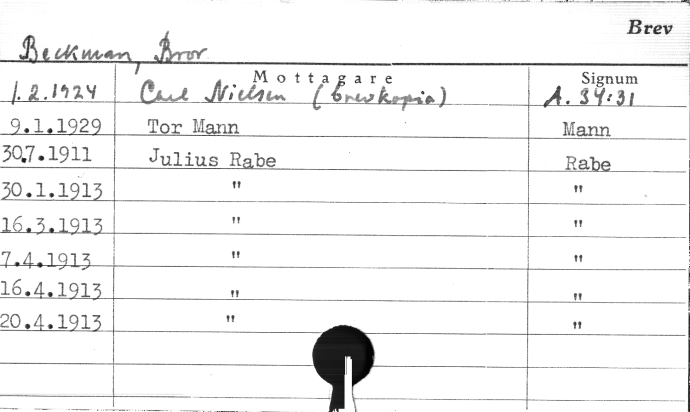 Brev
Beckman, Bror
Mottagare Signum
1.2.1924 Carl Nielsen (brevkopia) A. 34:31
9.1.1929 Tor Mann Mann
30.7.1911 Julius Rabe Rabe
30.1.1913 " "
16.3.1913 " "
7.4.1913 " "
16.4.1913 " "
20.4.1913 " "